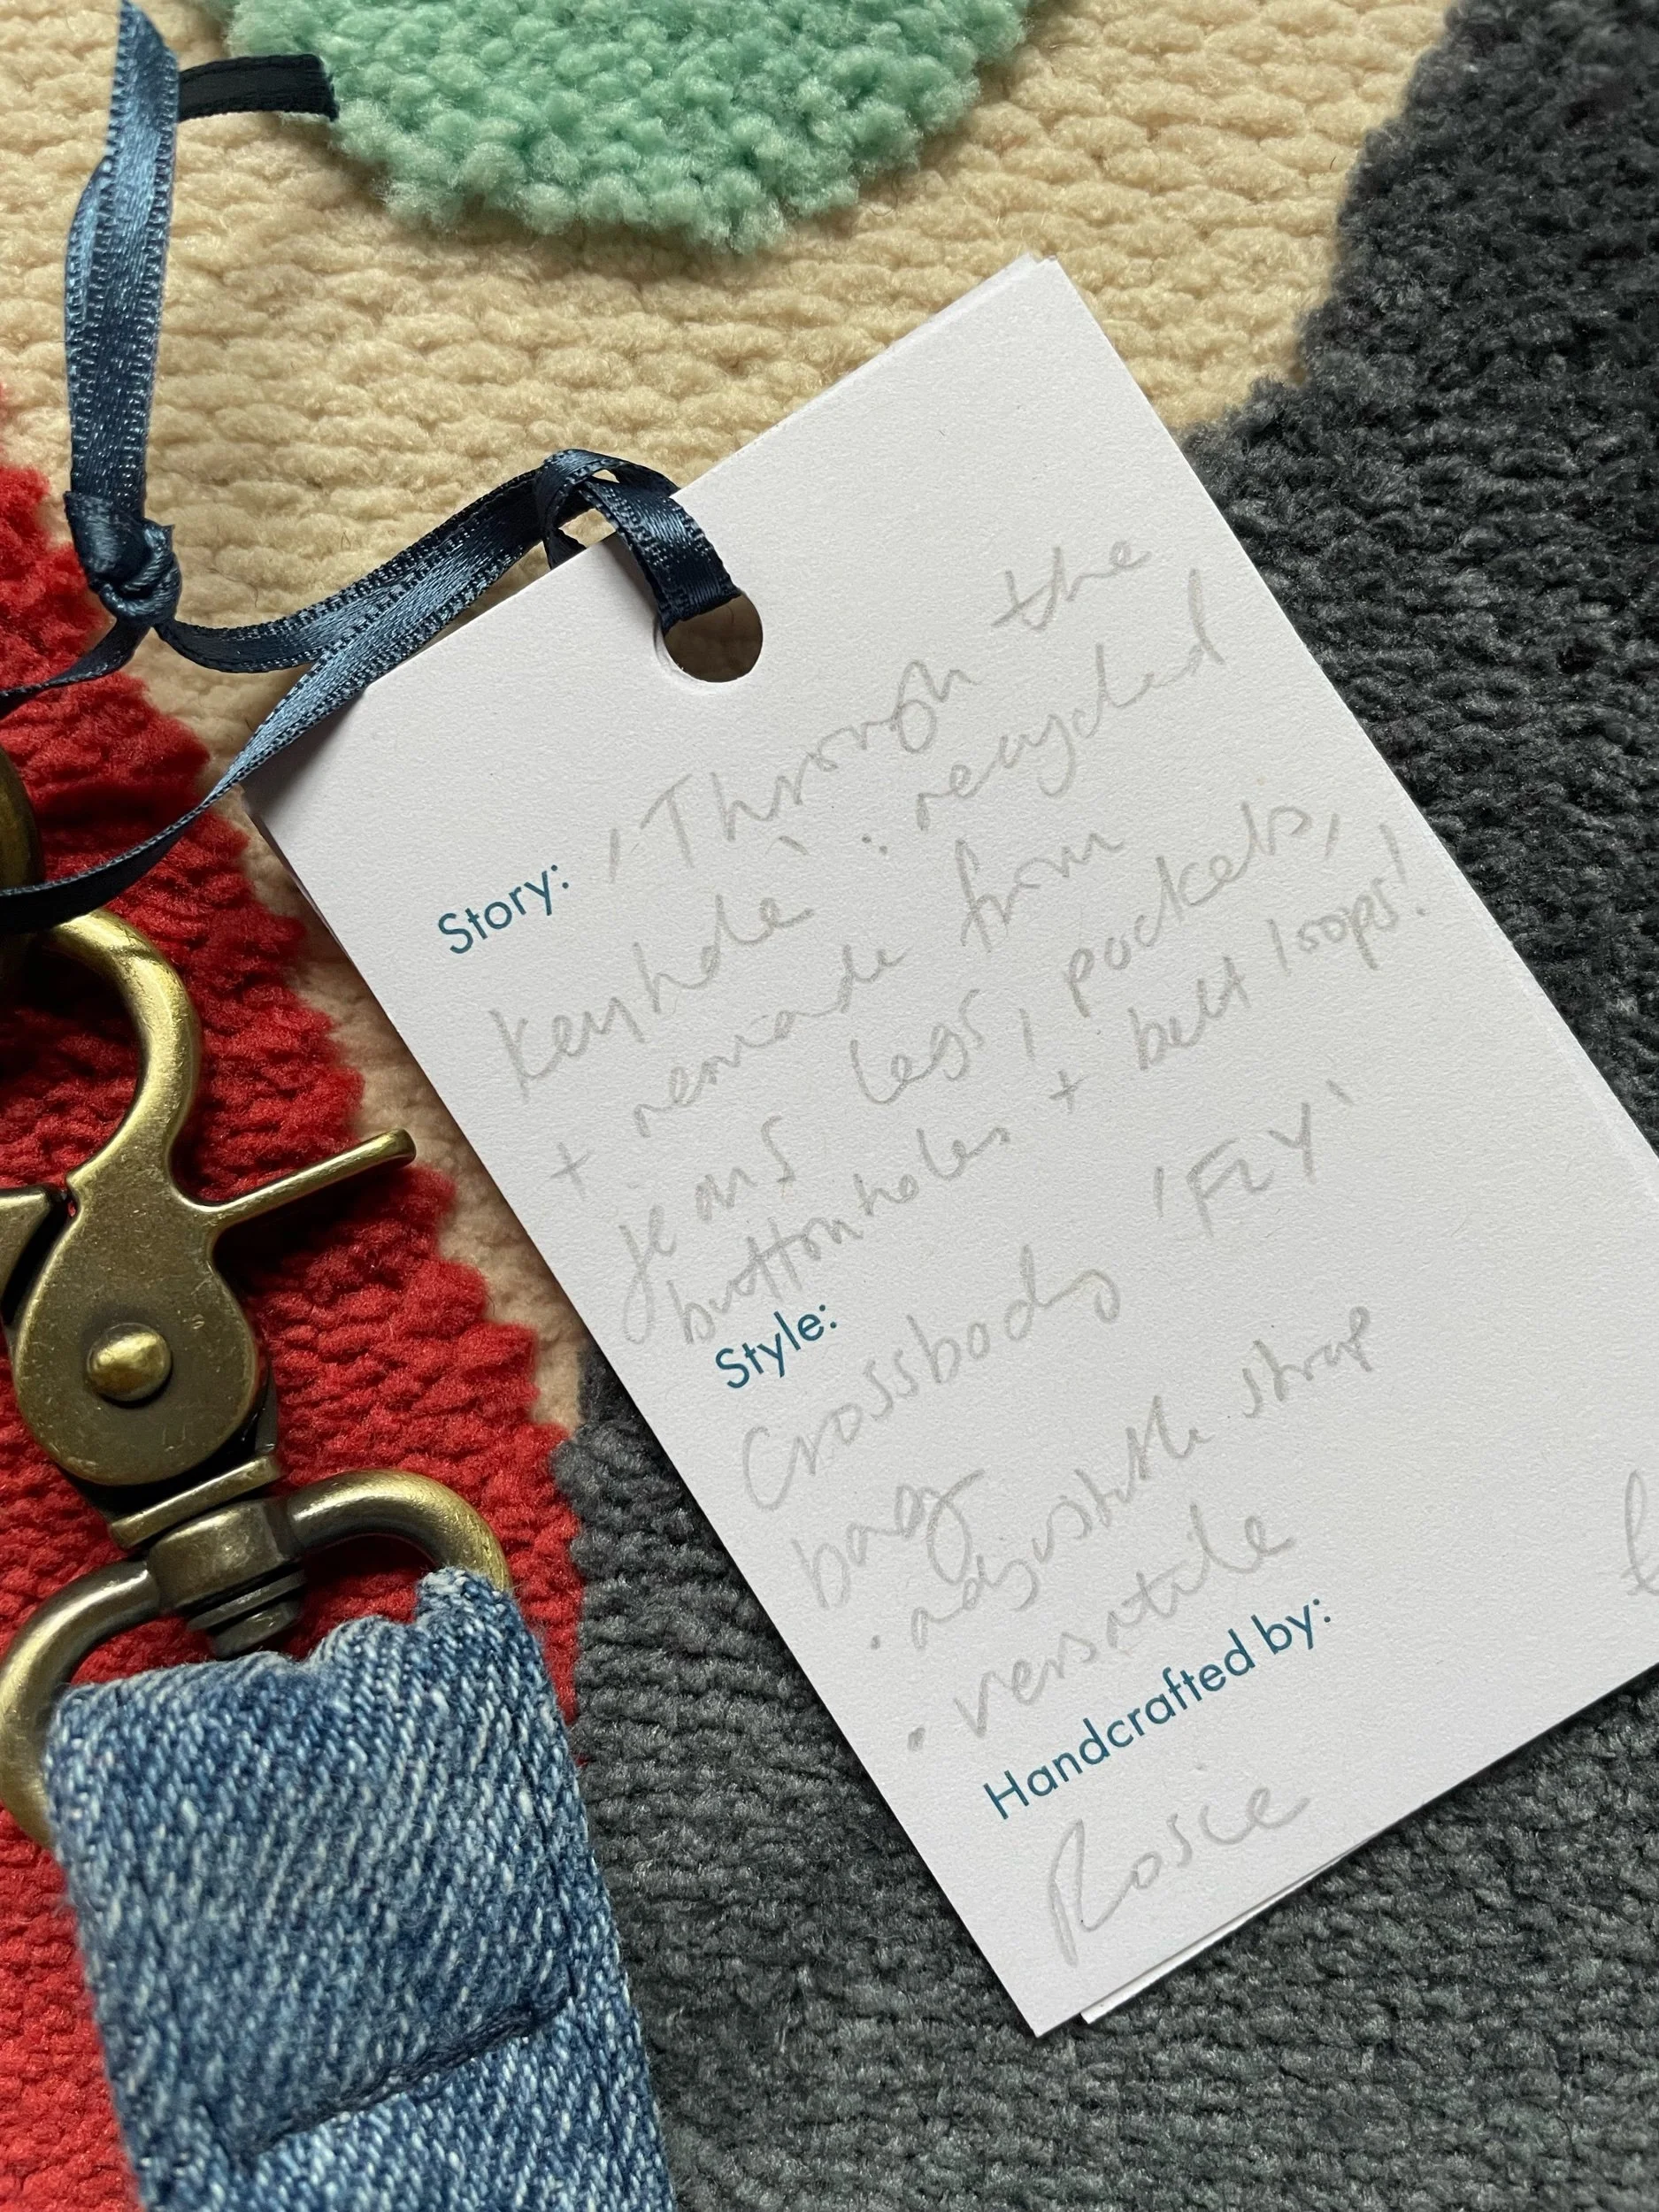 Story: 'Through the
keyhole' : recycled
+ remade from
jeans legs, pockets,
buttonholes + belt loops!
Style: 'FLY'
Crossbody
bag
• adjustable strap
• versatile
Handcrafted by:
Rosie